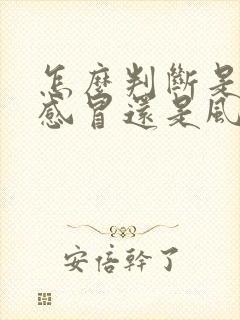 怎麼判斷是
感冒還是風
安倍幹了